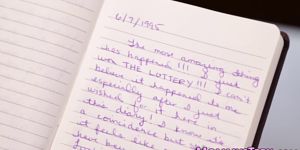 6/7/1995
The most amazing thing
has happened!!! I just
won THE LOTTERY!!! I can't
believe it happened to me
especially after I just
wished for it here in
this diary! I know its
a coincidence but
it feels like
have been